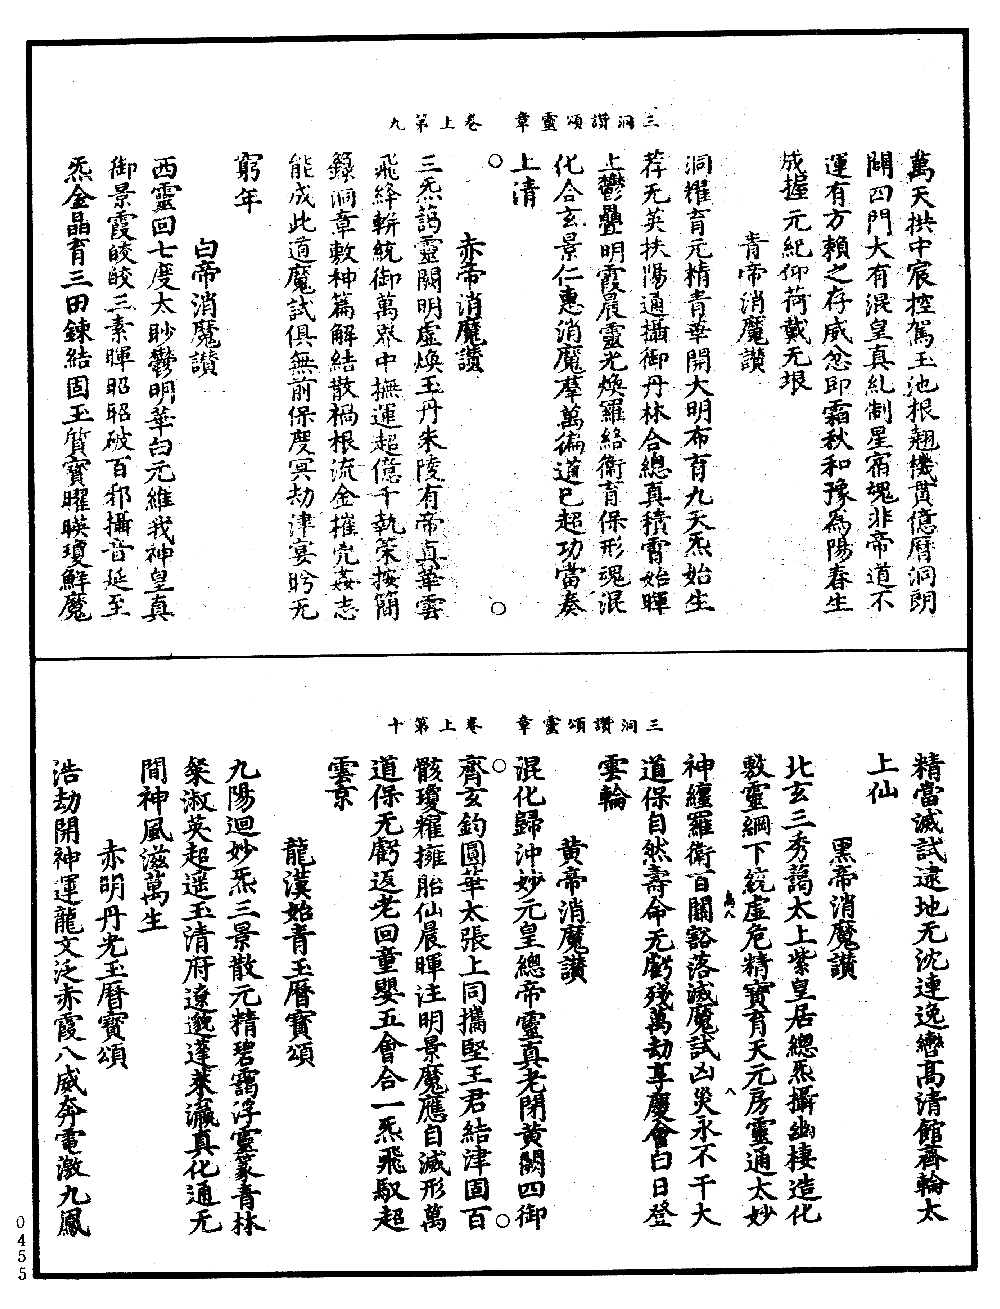 三洞讚頌靈章　卷上第九
萬天拱中宸控駕玉池根翹機貫億曆洞朗
闢四門大有混皇真乣制星宿魂非帝道不
運有方賴之存威忿即霜秋和豫為陽春生
成握元紀仰荷戴无垠
青帝消魔讚
洞耀育元精青華開大明布育九天炁始生
荐无英扶陽通攝御丹林合總真積霄始暉
上鬱壘明霞晨靈光煥羅絡衛育保形魂混
化合玄景仁惠消魔羣萬徧道已超功當奏
上清
赤帝消魔讚
三炁藹靈闕明虛煥玉丹朱陵有帝真華雲
飛絳輧統御萬炁中撫運超億千執策按簡
錄洞章敕神篇解結散禍根流金摧兇姦志
能成此道魔試俱無前保度冥劫津宴盻无
窮年
白帝消魔讚
西靈回七度太眇鬱明華白元維我神皇真
御景霞皎皎三素暉昭昭破百邪攝音延至
炁金晶育三田鍊結固玉質寶曜暎瓊鮮魔
三洞讚頌靈章　卷上第十
精當滅試逮地无沈連逸轡高清館齊輪太
上仙
黑帝消魔讚
北玄三秀藹太上紫皇居總炁攝幽棲造化
敷靈綱下統虛危精寶育天元房靈通太妙
神纏羅衛百關豁落滅魔試凶災永不干大
道保自然壽命无虧殘萬劫享慶會白日登
雲輪
黄帝消魔讚
混化歸沖妙元皇總帝靈真老閉黄闕四御
齊玄鈞圓華太張上同攜堅王君結津固百
骸瓊糧擁胎仙晨暉注明景魔應自滅形萬
道保无虧返老回童嬰五會合一炁飛馭超
雲京
龍漢始青玉曆寶頌
九陽迴妙炁三景散元精碧靄浮靈篆青林
粲淑英超遥玉清府遼邈蓬萊瀛真化通无
間神風滋萬生
赤明丹光玉曆寶頌
浩劫開神運龍文泛赤霞八威奔電激九鳳
0455